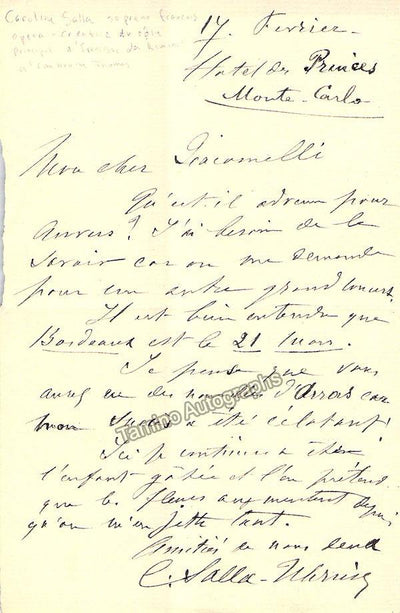 Caroline Salla soprano français
opéra - créatrice du rôle
principal d'Françoise da Rimini
d'Ambroise Thomas
17 Fevrier
Hotel des Princes
Monte-Carlo
Mon cher Giacomelli
Qu'est-il advenu pour
Anvers? J'ai besoin de le
savoir car on me demande
pour un autre grand concert.
Il est bien entendu que
Bordeaux est le 21 Mars.
Je pense que vous
avez eu des nouvelles d'Arras car
mon succès a été éclatant!
Ici je continue a être
l'enfant gâtée et l'on prétend
que les fleurs augmentent depuis
qu'on m'en jette tant.
Amitiés de nous deux
C. Salla-Uhring
Tamino Autographs